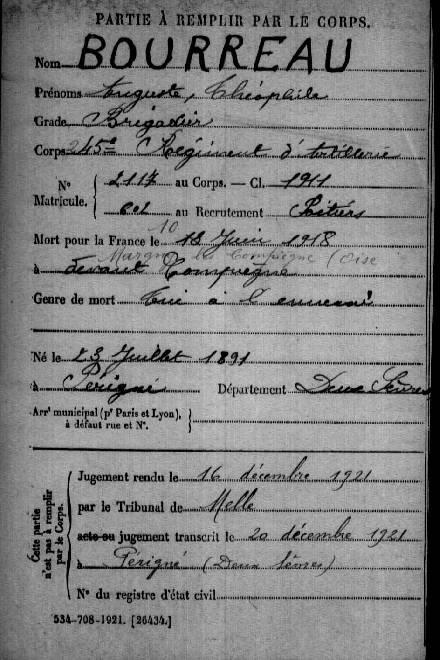 PARTIE À REMPLIR PAR LE CORPS.
Nom BOURREAU
Prénoms Auguste, Théophile
Grade Brigadier
Corps 245e Régiment d'artillerie
N° Matricule. { 2117 au Corps. — Cl. 1911
602 au Recrutement Poitiers
Mort pour la France le 18 Juin 1918
10
Margny les Compiègne (Oise
à devant Compiegne
Genre de mort Tué à l'ennemi
Né le 23 Juillet 1891
à Périgné Département Deux Sèvres
Arrt municipal (pr Paris et Lyon), à défaut rue et N°. }
Cette partie n'est pas à remplir par le Corps.
Jugement rendu le 16 décembre 1921
par le Tribunal de Melle
acte ou jugement transcrit le 20 décembre 1921
à Périgné (Deux Sèvres)
N° du registre d'état civil
534-708-1921. [26434.]